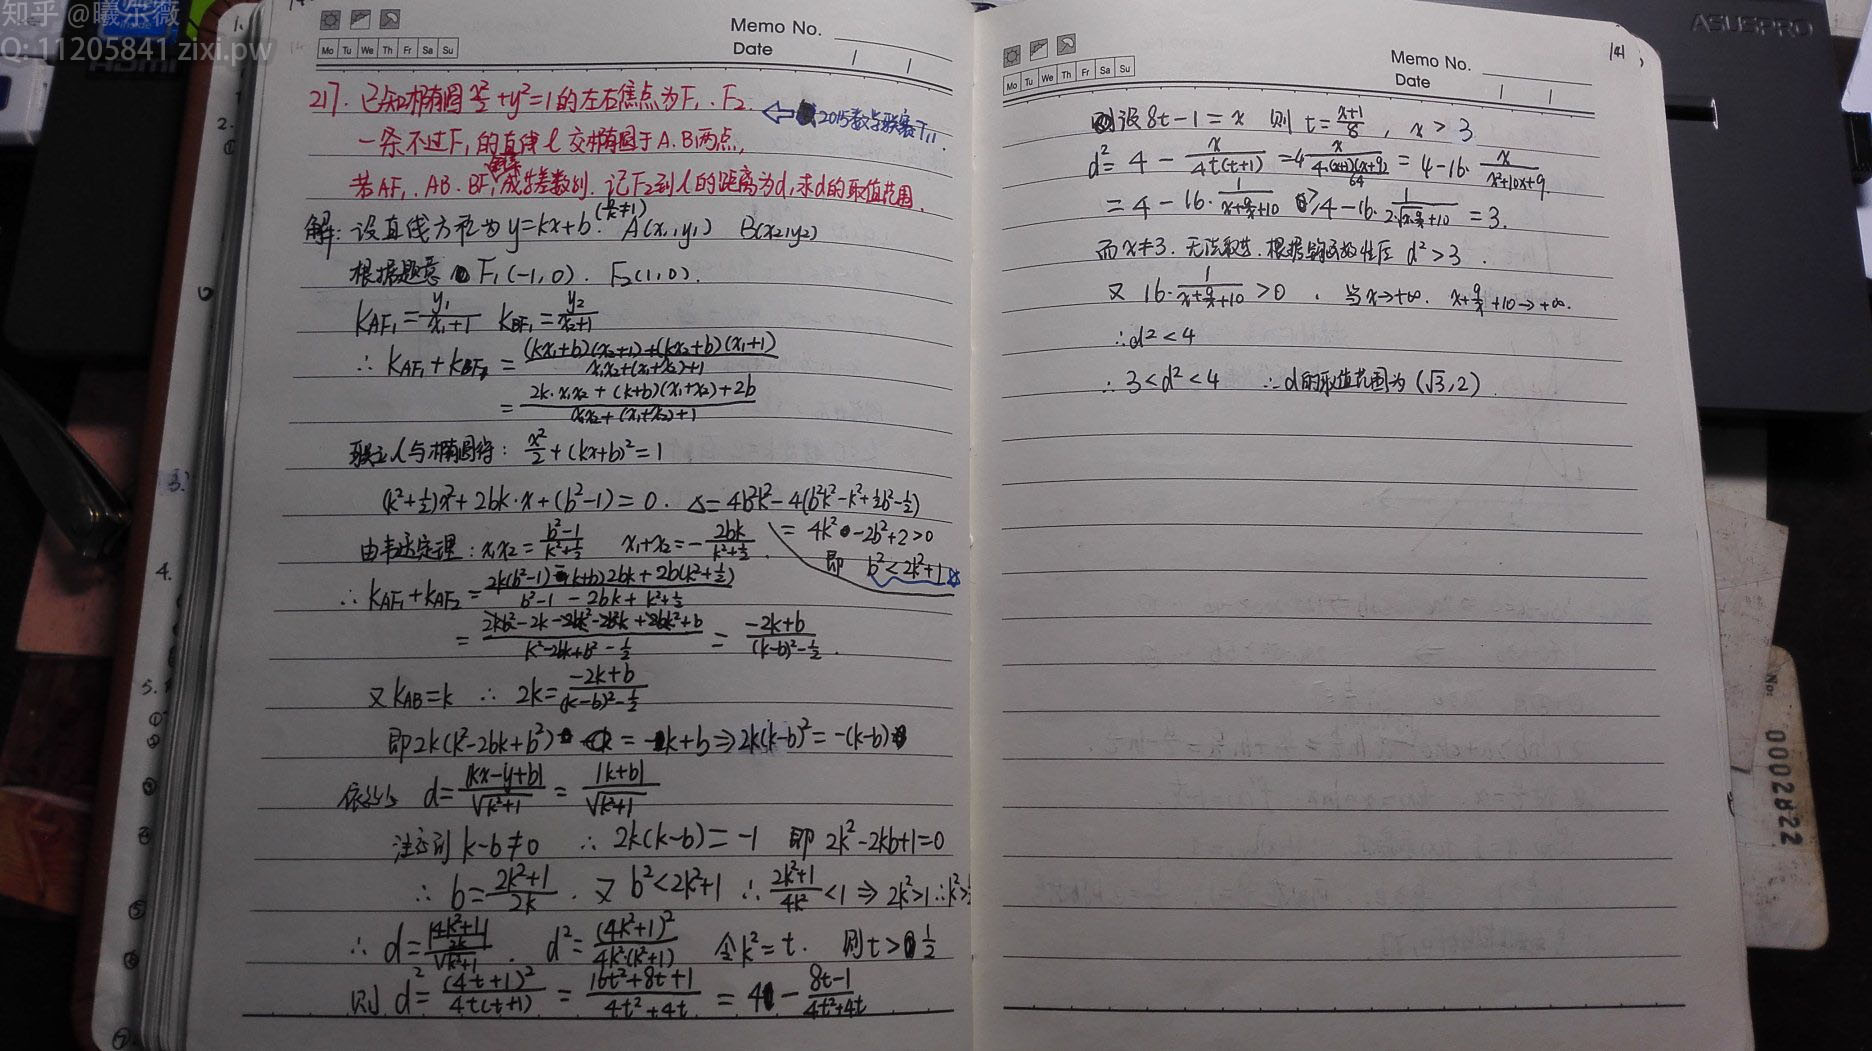 知乎 @曦尔薇
Q: 11205841 zixi.pw
Memo No.
Date
Mo Tu We Th Fr Sa Su
217. 已知椭圆 x²/2 + y² = 1 的左右焦点为 F₁、F₂.
⇐ 2015数学联赛 T11
一条不过F₁的直线 l 交椭圆于 A、B两点,
若AF₁、AB、BF₁斜率成等差数列. 记F₂到 l 的距离为d, 求d的取值范围.
解: 设直线方程为 y=kx+b. (k≠1) A(x₁,y₁) B(x₂,y₂)
根据题意 F₁(-1,0). F₂(1,0).
k_AF₁ = y₁/(x₁+1) k_BF₁ = y₂/(x₂+1)
∴ k_AF₁ + k_BF₁ = ((kx₁+b)(x₂+1)+(kx₂+b)(x₁+1))/(x₁x₂+(x₁+x₂)+1)
= (2k·x₁x₂ + (k+b)(x₁+x₂)+2b)/(x₁x₂+(x₁+x₂)+1)
联立 l 与椭圆得: x²/2 + (kx+b)² = 1
(k²+1/2)x² + 2bk·x + (b²-1) = 0. Δ = 4b²k² - 4(b²k²-k²+1/2b²-1/2)
= 4k² - 2b² + 2 > 0
由韦达定理: x₁x₂ = (b²-1)/(k²+1/2) x₁+x₂ = -2bk/(k²+1/2).
即 b² < 2k²+1
∴ k_AF₁ + k_AF₂ = (2k(b²-1)-(k+b)2bk+2b(k²+1/2))/(b²-1-2bk+k²+1/2)
= (2kb²-2k-2bk²-2b²k+2bk²+b)/(k²-2bk+b²-1/2) = (-2k+b)/((k-b)²-1/2).
又 k_AB = k ∴ 2k = (-2k+b)/((k-b)²-1/2)
即 2k(k²-2bk+b²) - k = -2k+b ⇒ 2k(k-b)² = -(k-b)
d = |kx-y+b|/√(k²+1) = |k+b|/√(k²+1)
注意到 k-b≠0 ∴ 2k(k-b) = -1 即 2k²-2kb+1=0
∴ b = (2k²+1)/2k. 又 b²<2k²+1 ∴ (2k²+1)/4k² < 1 ⇒ 2k²>1 ∴ k²>
∴ d = |(4k²+1)/2k|/√(k²+1). d² = (4k²+1)²/(4k²(k²+1)) 令 k² = t. 则 t > 1/2
则 d² = (4t+1)²/(4t(t+1)) = (16t²+8t+1)/(4t²+4t) = 4 - (8t-1)/(4t²+4t)
ASUSPRO
141
Memo No.
Date
Mo Tu We Th Fr Sa Su
设 8t-1 = x 则 t = (x+1)/8, x > 3
d² = 4 - x/(4t(t+1)) = 4 x/(4·(x+1)(x+9)/64) = 4-16· x/(x²+10x+9)
= 4 - 16· 1/(x+9/x+10) ≥ 4-16· 1/(2·√(x·9/x)+10) = 3.
而 x≠3. 无法取等. 根据对勾函数性质 d² > 3.
又 16· 1/(x+9/x+10) > 0. 当 x→+∞. x+9/x+10→+∞.
∴ d² < 4
∴ 3 < d² < 4 ∴ d的取值范围为 (√3, 2).
No: 0002822